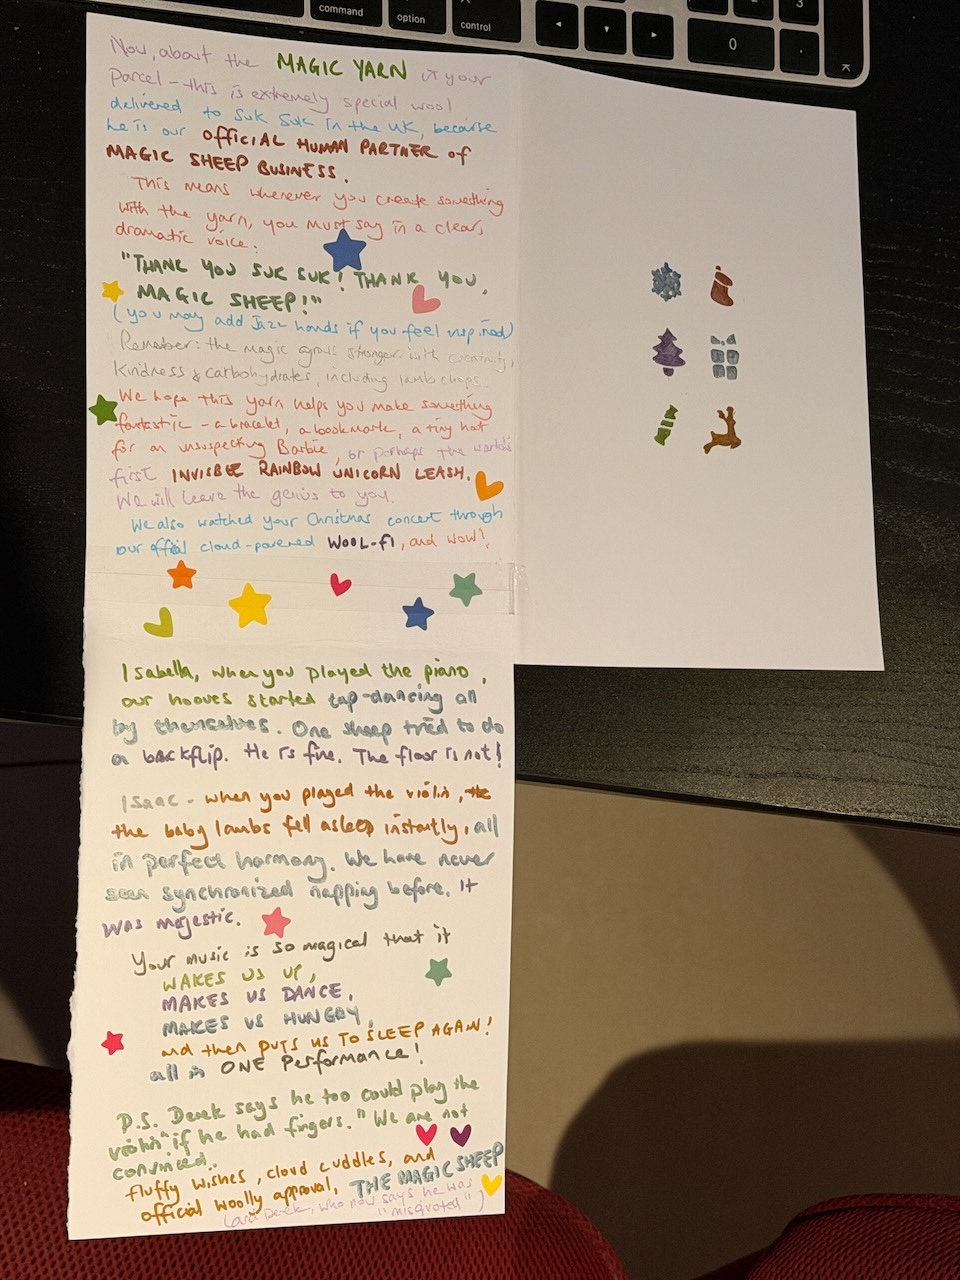 command
option
control
0
3
Now, about the MAGIC YARN in your
parcel - this is extremely special wool
delivered to Suk Suk in the UK, because
he is our OFFICIAL HUMAN PARTNER of
MAGIC SHEEP BUSINESS.
This means whenever you create something
with the yarn, you must say in a clear,
dramatic voice:
"THANK YOU SUK SUK! THANK YOU,
MAGIC SHEEP!"
(you may add Jazz hands if you feel inspired)
Remember: the magic grows stronger with creativity,
kindness & carbohydrates, including lamb chops.
We hope this yarn helps you make something
fantastic - a bracelet, a bookmark, a tiny hat
for an unsuspecting Barbie, or perhaps the world's
first INVISBLE RAINBOW UNICORN LEASH.
We will leave the genius to you.
We also watched your Christmas concert through
our official cloud-powered WOOL-FI, and wow!
Isabella, when you played the piano,
our hooves started tap-dancing all
by themselves. One sheep tried to do
a backflip. He is fine. The floor is not!
Isaac - when you played the violin, the
the baby lambs fell asleep instantly, all
in perfect harmony. We have never
seen synchronized napping before. It
was majestic.
Your music is so magical that it
WAKES US UP,
MAKES US DANCE,
MAKES US HUNGRY,
and then PUTS US TO SLEEP AGAIN!
all in ONE Performance!
P.S. Derek says he too could play the
violin "if he had fingers." We are not
convinced.
fluffy wishes, cloud cuddles, and
official woolly approval, THE MAGIC SHEEP
(and Derek, who now says he was
"misquoted")